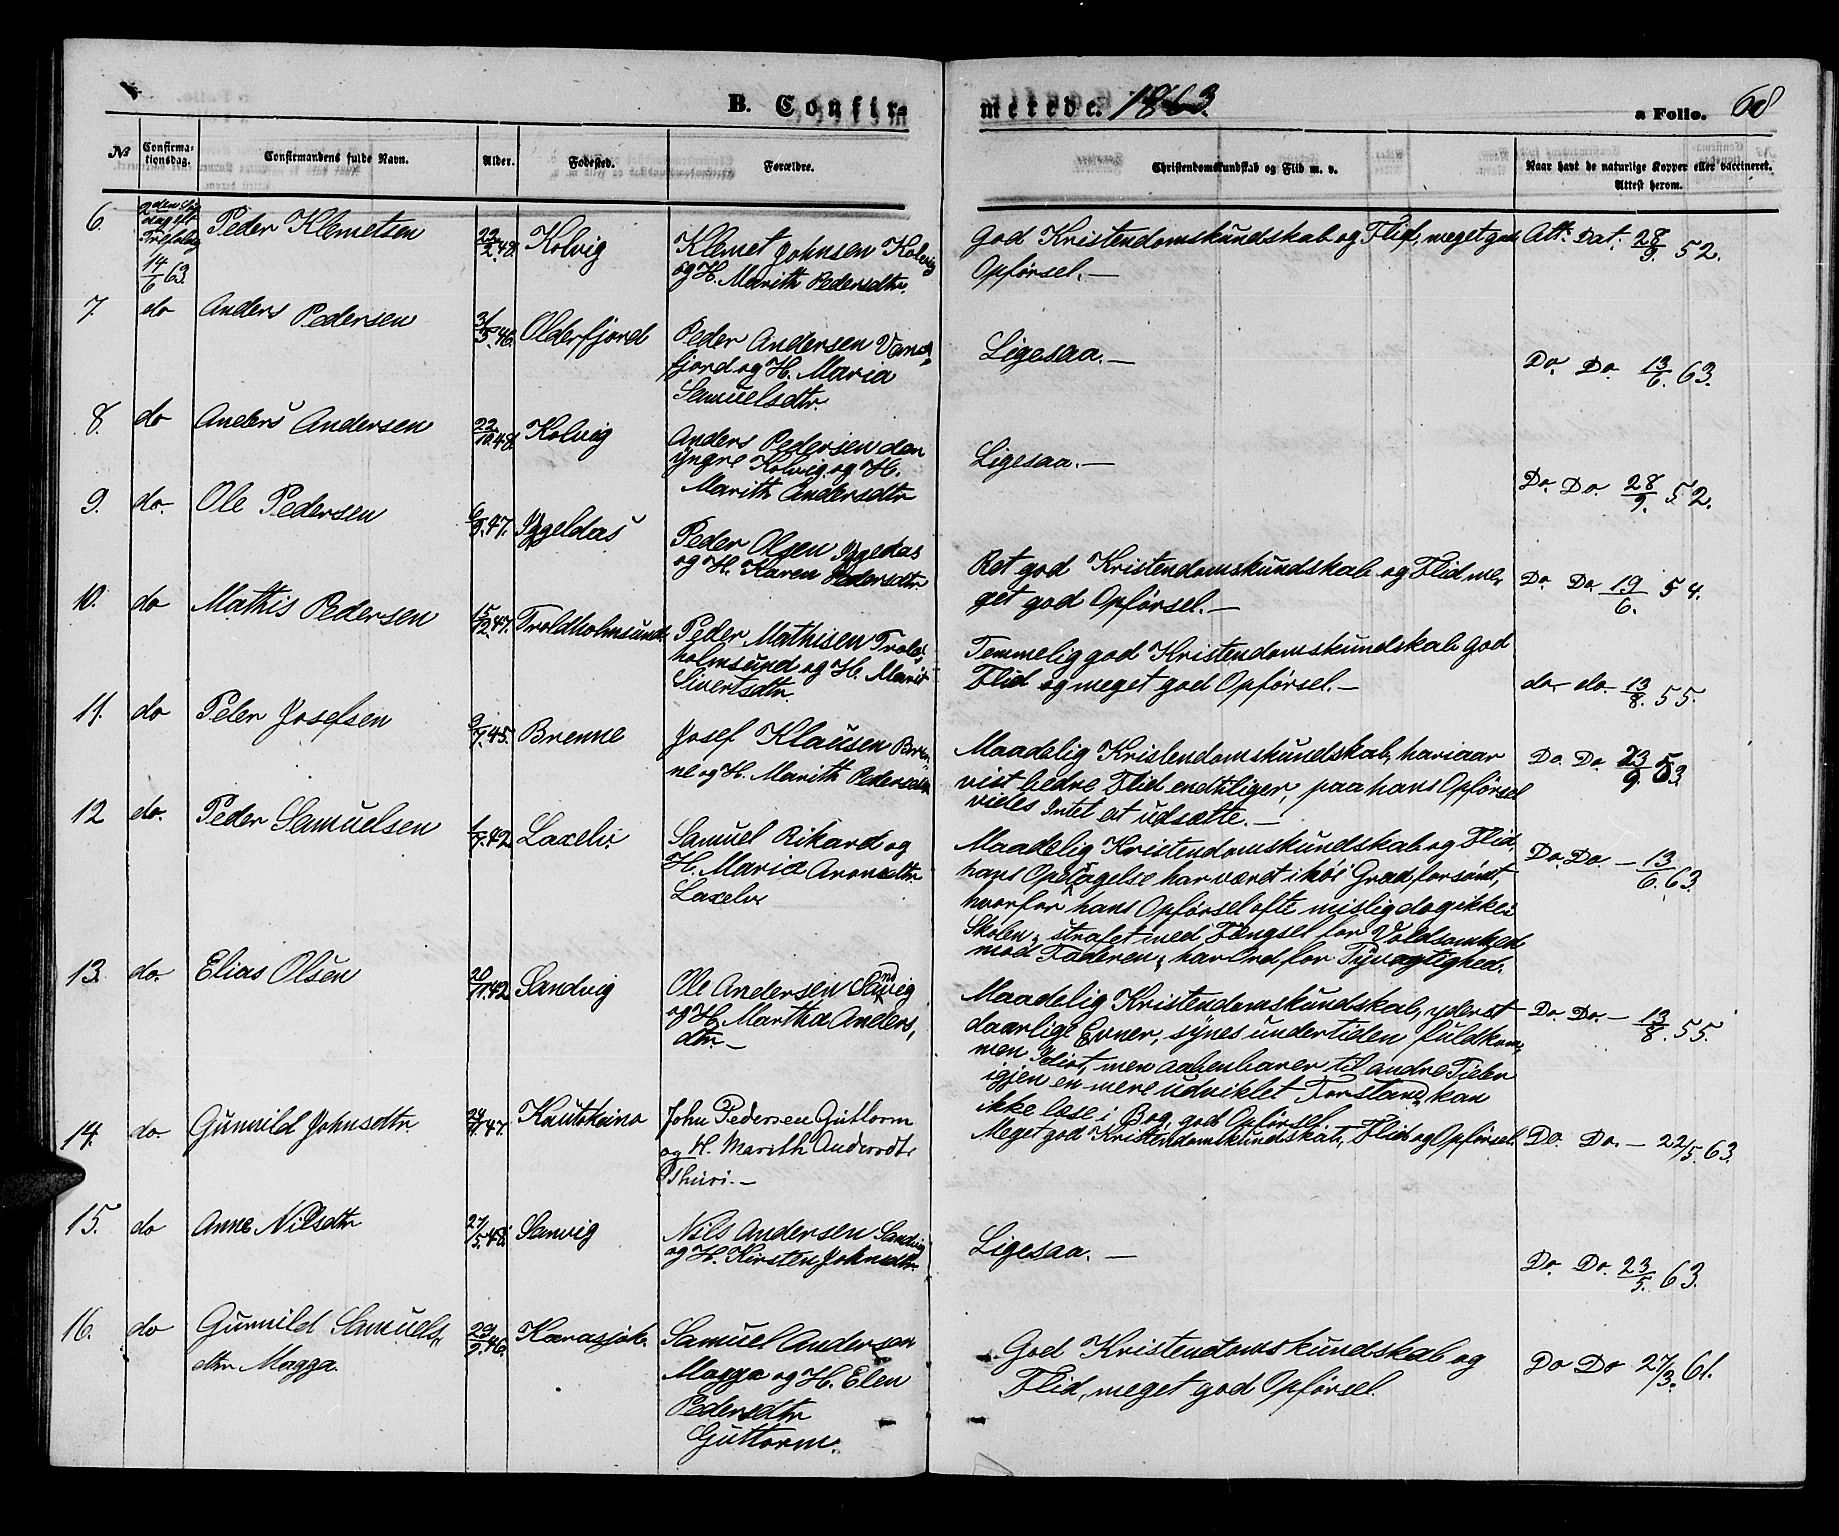 B. Confir-
merede. 1863.
a Folio. 68
№
Confirma-
tionsdag.
Confirmandens fulde Navn.
Alder.
Fødested.
Forældre.
Christendomskundskab og Flid m. v.
Naar havt de naturlige Kopper eller vaccineret.
Attest herom.
6.
14/6 63.
Peder Klemetsen
22/2.48.
Kolvig
Klemet Johnsen Kolvig
og H. Marith Pedersdtr.
God Kristendomskundskab og Flid, meget god
Opførsel.—
Att. Dat. 28/9. 52.
7.
do
Anders Pedersen
31/5.46.
Olderfjord
Peder Andersen Vand„
fjord og H. Maria
Samuelsdtr.
Ligesaa.—
Do. Do. 13/6. 63.
8.
do
Anders Andersen
22/10.48.
Kolvig
Anders Pedersen den
yngre Kolvig og H.
Marith Andersdtr
Ligesaa.—
Do. Do. 28/9. 52.
9.
do.
Ole Pedersen
6/9.47.
Iggeldas
Peder Olsen Iggedas
og H. Karen Pedersdtr.
Ret god Kristendomskundskab og Flid me„
get god Opførsel.—
Do Do 19/6. 54.
10.
do
Mathis Pedersen
15/12.47.
Troldholmsund.
Peder Mathisen Trold„
holmsund og H. Marit
Sivertsdtr.
Temmelig god Kristendomskundskab God
Flid og meget god Opførsel.—
do do. 13/8. 55.
11.
do
Peder Josefsen
9/7.45.
Brenne
Josef Klausen Bren„
ne og H. Marith Pedersdtr
Maadelig Kristendomskundskab, har iaar
vist bedre Flid end tidligere, paa hans Opførsel
vides Intet at udsætte.—
Do. Do. 23/9. 53.
12
do.
Peder Samuelsen
1/7.42
Laxelv.
Samuel Rikard og
H. Maria Aronsdtr
Laxelv
Maadelig Kristendomskundskab og Flid.
hans Opdragelse har været i høi Grad forsømt,
hvorfor hans Opførsel ofte mislig dog ikke i
Skolen; strafet med Fængsel for Voldsomhed
mod Faderen; har Ord for Tyvagtighed.
Do. Do. — 13/6. 63.
13.
do.
Elias Olsen
20/11.42
Sandvig
Ole Andersen Sandvig
og H. Martha Anders„
dtr.—
Maadelig Kristendomskundskab, yderst
daarlige Evner, synes undertiden fuldkom„
men Idiot, men aabenbarer til andre Tider
igjen en mere udviklet Forstand, kan
ikke læse i Bog, god Opførsel.
Do. Do. — 13/8. 55.
14.
do.
Gunnild Johnsdtr.
24/4.47.
Kautokeino
John Pedersen Guttorm
og H. Marith Andersdtr
Thuri.—
Meget god Kristendomskundskab, Flid og Opførsel.
Do. Do. — 22/5. 63.
15.
do
Anne Nilsdtr
27/5.48.
Sanvig
Nils Andersen Sandvig
og H. Kirsten Johnsdtr.
Ligesaa.—
Do. Do. 23/5. 63.
16.
do
Gunnild Samuels„
dtr Magga.
29/9.46.
Karasjok.
Samuel Andersen
Magga og H. Elen
Pedersdtr
Guttorm.
God Kristendomskundskab og
Flid, meget god Opførsel.
Do Do 27/3. 61.